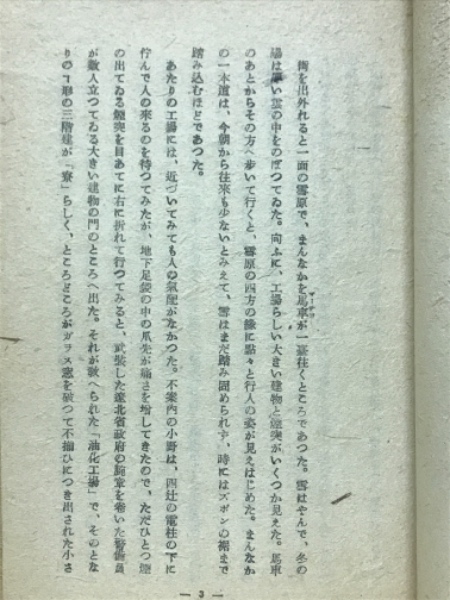 街を出外れると一面の雪原で、まんなかを馬車が一臺往くところであつた。雪はやんで、冬の
マーチヨ
陽は厚い雲の中をのぼつてゐた。向ふに、工場らしい大きい建物と煙突がいくつか見えた。馬車
のあとからその方へ歩いて行くと、雪原の四方の縁に點々と行人の姿が見えはじめた。まんなか
の一本道は、今朝から往來も少ないとみえて、雪はまだ踏み固められず、時にはズボンの裾まで
踏み込むほどであつた。
あたりの工場には、近づいてみても人の氣配がなかつた。不案内の小野は、四辻の電柱の下に
佇んで人の來るのを待つてみたが、地下足袋の中の爪先が痛さを增してきたので、ただひとつ煙
の出てゐる煙突を目あてに右に折れて行つてみると、武裝した遼北省政府の腕章を卷いた警備員
が數人立つてゐる大きい建物の門のところへ出た。それが敎へられた「油化工場」で、そのとな
りのㄱ形の三階建が「寮」らしく、ところどころがガラス窓を破つて不揃ひにつき出された小さ
— 3 —